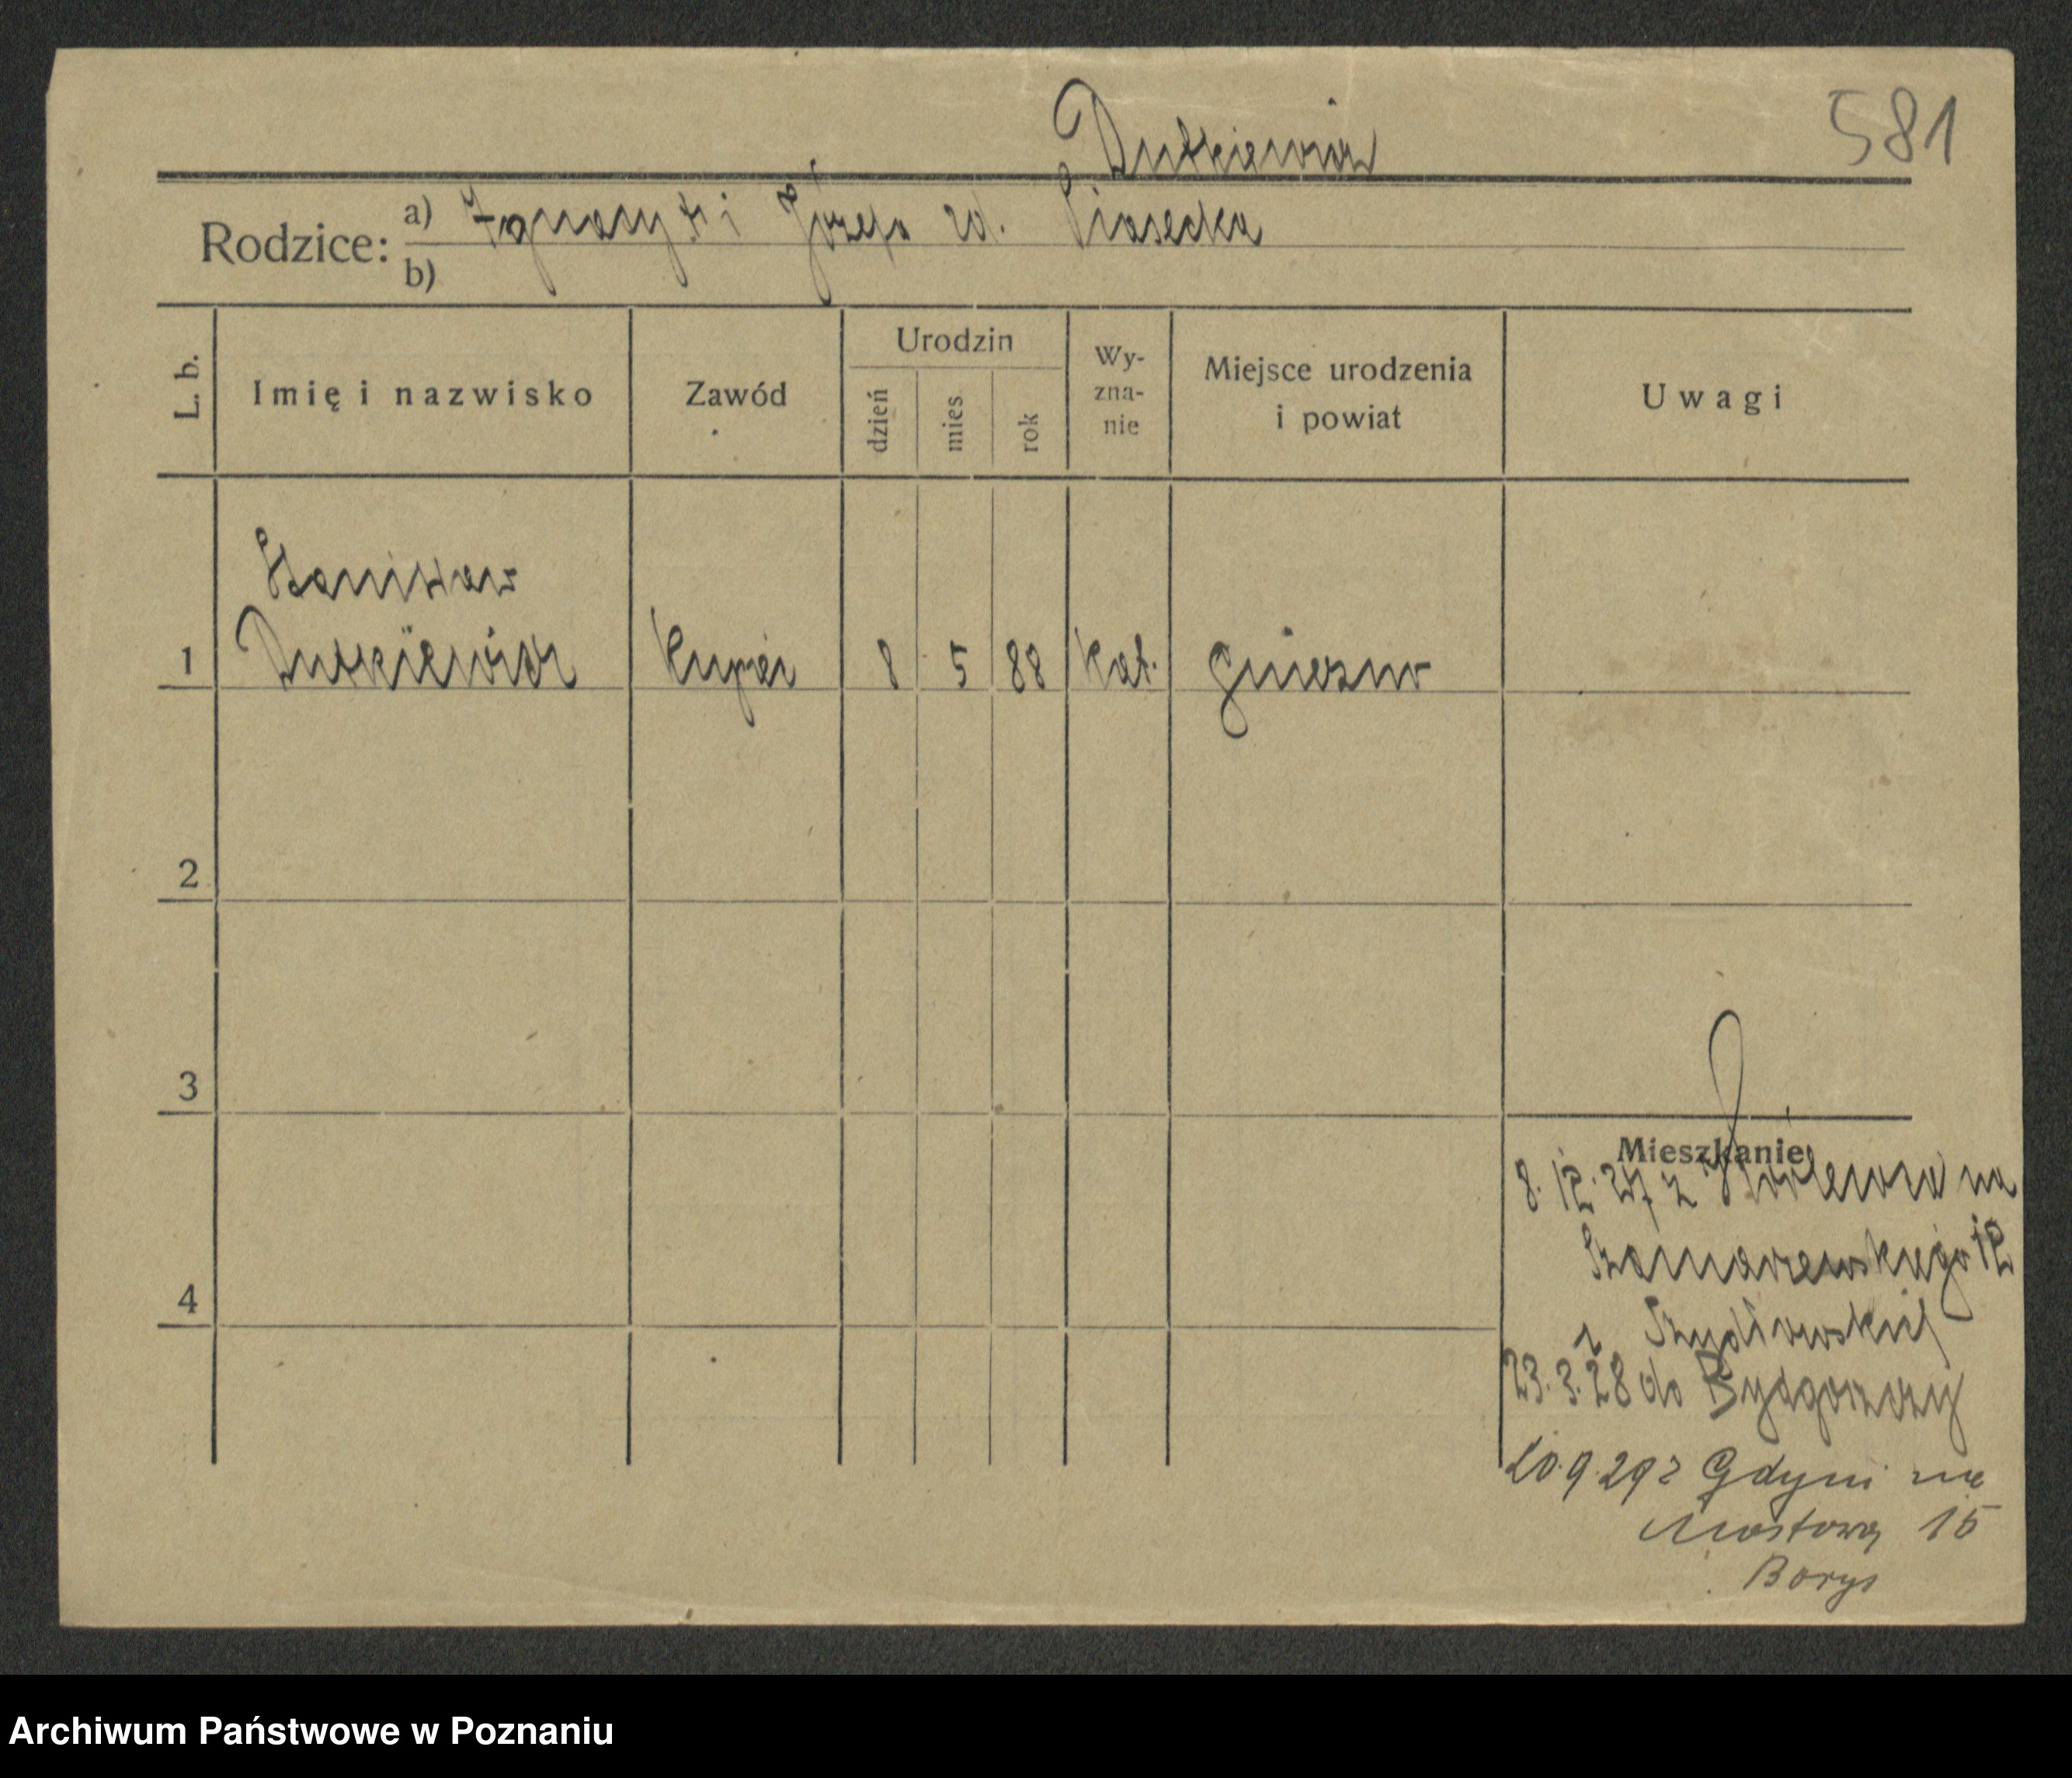 581
Dutkiewicz
Rodzice: a) Ignacy † i Józefa zd. Piasecka
b)
L. b. Imię i nazwisko Zawód Urodzin dzień mies. rok Wy-zna-nie Miejsce urodzenia i powiat Uwagi
Stanisław
1 Dutkiewicz kupiec 8 5 88 kat. Gniezno
2
3
Mieszkanie
8. 12. 27 z na
Szamarzewskiego 12
4
z Szydłowskiej
23. 3. 28 do Bydgoszczy
20.9.29 z Gdyni na
Mostową 15
Borys
Archiwum Państwowe w Poznaniu